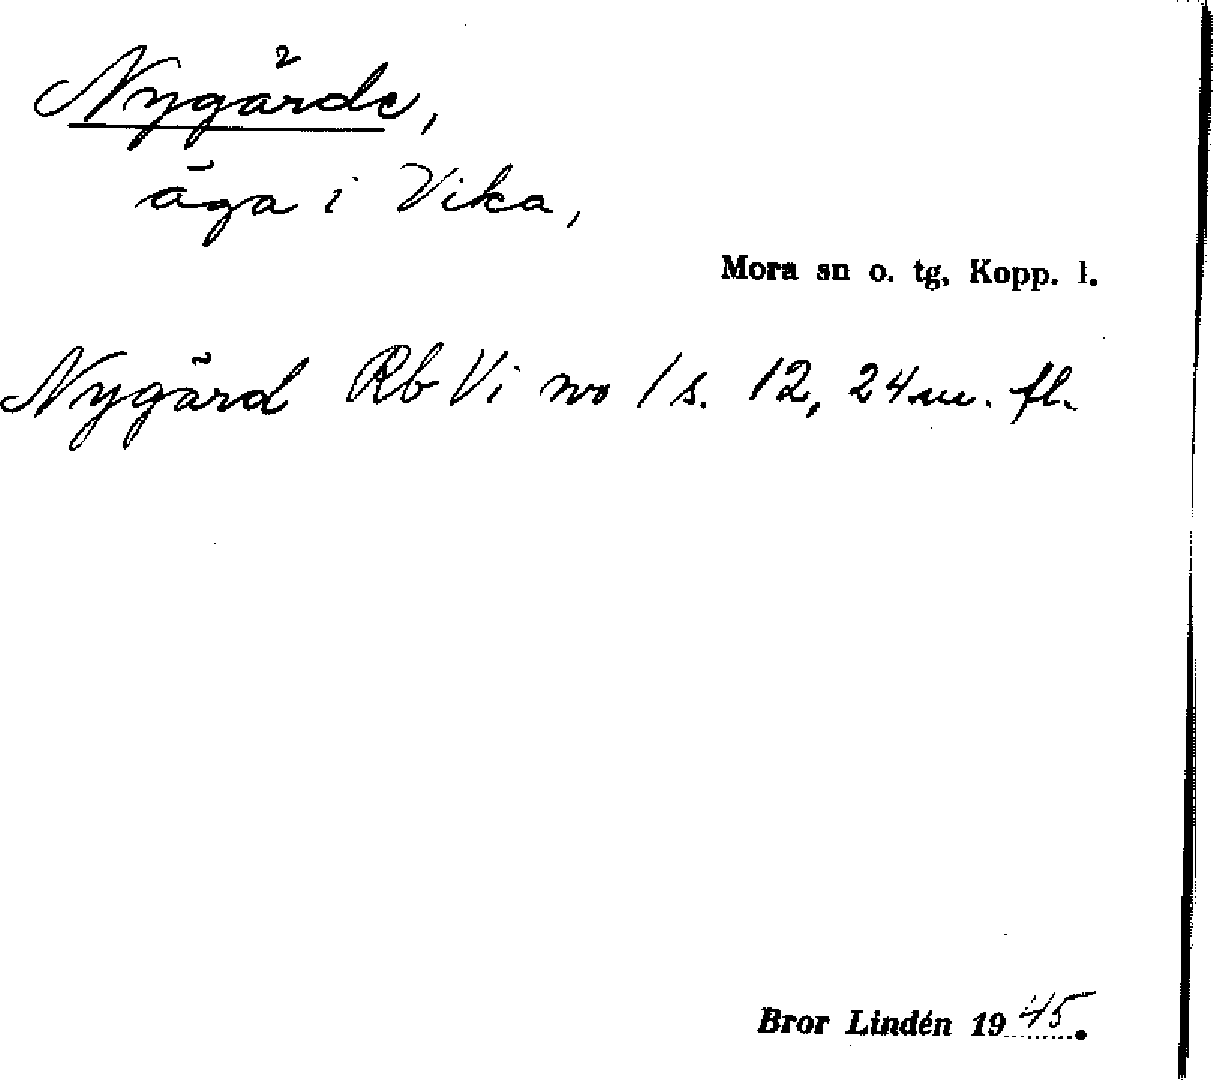 Nygärde,
äga i Vika,
Mora sn o. tg, Kopp. l.
Nygärd Rb Vi no 1 s. 12, 24 m. fl.
Bror Lindén 1945.